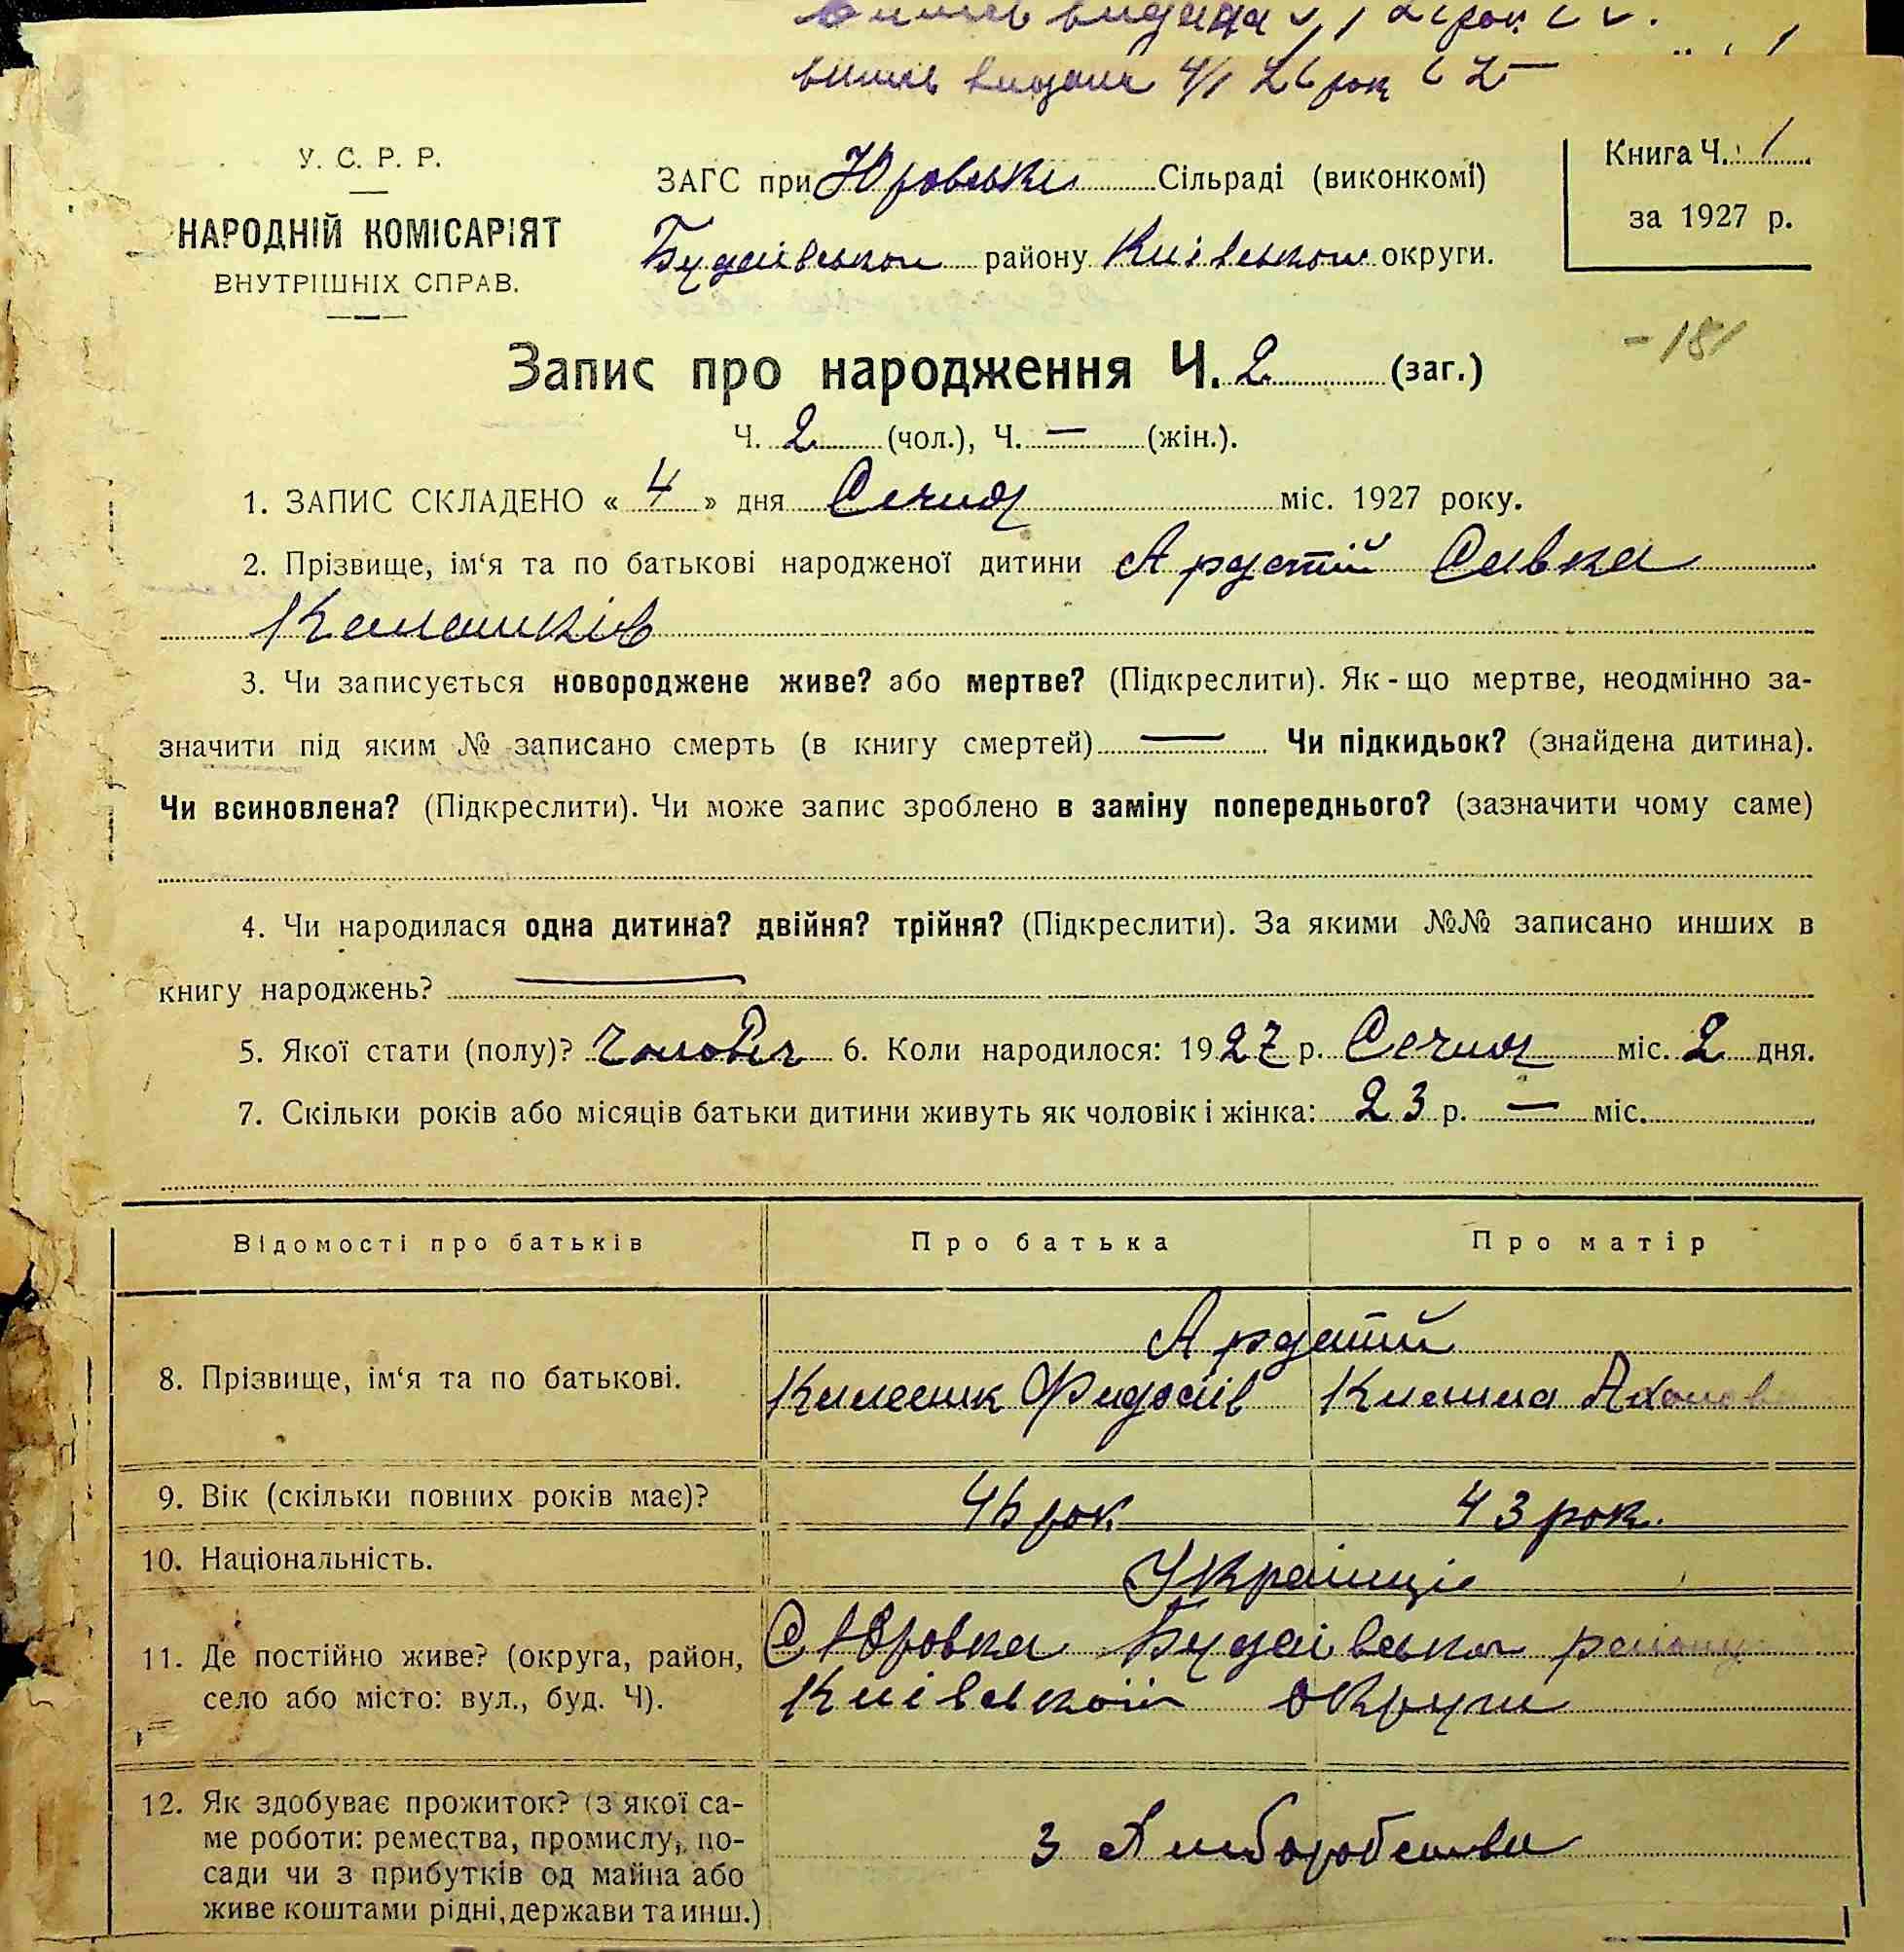 випись видана 4/1 26 рок
У. С. Р. Р.
НАРОДНІЙ КОМІСАРІЯТ
ВНУТРІШНІХ СПРАВ.
ЗАГС при Юровські Сільраді (виконкомі)
Будаівськои району Киівськои округи.
Книга Ч. 1
за 1927 р.
-181
Запис про народження Ч. 2 (заг.)
Ч. 2 (чол.), Ч. — (жін.).
1. ЗАПИС СКЛАДЕНО « 4 » дня Сечня міс. 1927 року.
2. Прізвище, ім‘я та по батькові народженої дитини Ардатій Савка
3. Чи записується новороджене живе? або мертве? (Підкреслити). Як-що мертве, неодмінно за-
значити під яким № записано смерть (в книгу смертей) — Чи підкидьок? (знайдена дитина).
Чи всиновлена? (Підкреслити). Чи може запис зроблено в заміну попереднього? (зазначити чому саме)
4. Чи народилася одна дитина? двійня? трійня? (Підкреслити). За якими №№ записано инших в
книгу народжень? —
5. Якої стати (полу)? Чоловіч 6. Коли народилося: 1927 р. Сечня міс. 2 дня.
7. Скільки років або місяців батьки дитини живуть як чоловік і жінка: 23 р. — міс.
Відомості про батьків Про батька Про матір
Ардатий
8. Прізвище, ім‘я та по батькові. Фидосіів Килина
9. Вік (скільки повних років має)? рок 43 рок.
10. Національність. Украінці
11. Де постійно живе? (округа, район,
село або місто: вул., буд. Ч).
С Юровка Будаівськои району
Киівськоій округи
12. Як здобуває прожиток? (з якої са-
ме роботи: ремества, промислу, по-
сади чи з прибутків од майна або
живе коштами рідні, держави та инш.)
З Хлиборобства